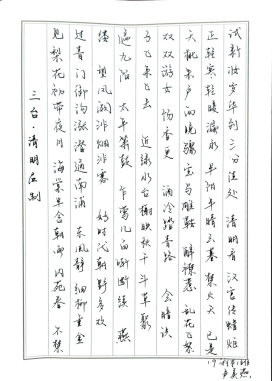 三台·清明应制
见梨花初带夜月 海棠半含朝雨 内苑春 不禁
过青门御沟涨潜通南浦 东风静细柳垂金
缕 望凤阙非烟非雾 好时代朝野多欢
遍九陌 太平箫鼓 乍莺儿百啭断续 燕
子飞来飞去 近绿水台榭映秋千斗草聚
双双游女 饧香更 酒冷踏青路 会暗识
夭桃朱户向晚骤 宝马雕鞍 醉襟惹 乱花飞絮
正轻寒轻暖漏永 半阴半晴云暮 禁火天 已是
试新妆岁华到三分佳处 清明看汉宫传蜡炬